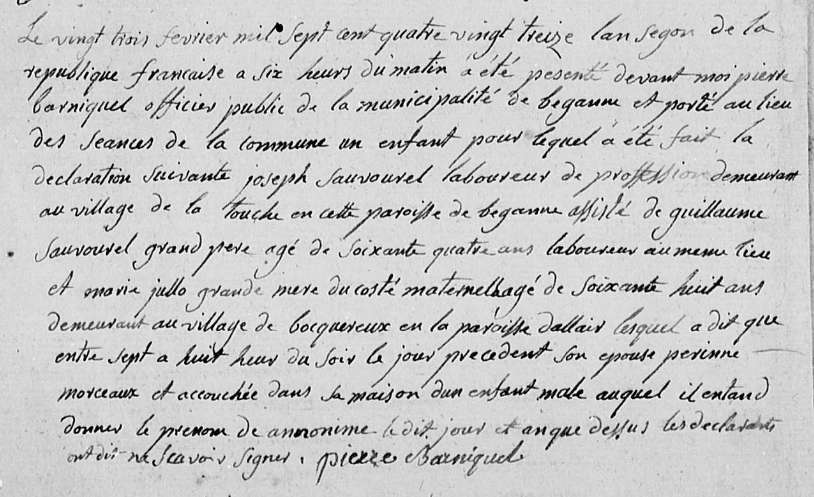 Le vingt trois fevrier mil sept cent quatre vingt treize lan segon de la
republique francaise a six heurs du matin a été pesenté devant moi pierre
barniquel officier public de la municipalité de beganne et porté au lieu
des seances de la commune un enfant pour lequel a été fait la
declaration suivante joseph sauvourel laboureur de proffession demeurant
au village de la touche en cette paroisse de beganne assisté de guillaume
sauvourel grand pere agé de soixante quatre ans laboureur au meme lieu
et marie jullo grande mere du costé maternelle agé de soixante huit ans
demeurant au village de bocquereux en la paroisse dallair lesquel a dit que
entre sept a huit heur du soir le jour precedent son epouse perinne
morceaux et accouchée dans sa maison dun enfant male auquel il entand
donner le prenom de annonime le dit jour et an que dessus les declarants
ont dit na scavoir signer . pierre Barniquel